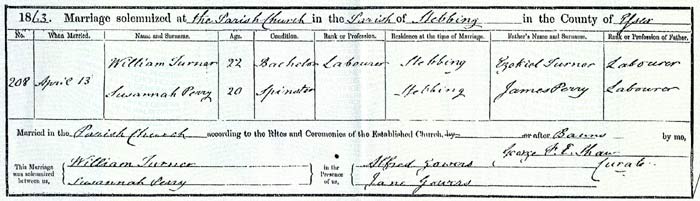 1863. Marriage solemnized at the Parish Church in the Parish of Stebbing in the County of Essex
No. When Married. Name and Surname. Age. Condition. Rank or Profession. Residence at the time of Marriage. Father's Name and Surname. Rank or Profession of Father.
William Turner 22 Bachelor Labourer Stebbing Ezekiel Turner Labourer
208 April 13
Susannah Perry 20 Spinster Stebbing James Perry Labourer
Married in the Parish Church according to the Rites and Ceremonies of the Established Church, by or after Banns by me,
George F. E. Shaw
Curate
This Marriage was solemnized between us,
William Turner
Susannah Perry
in the Presence of us,
Alfred Gowers
Jane Gowers